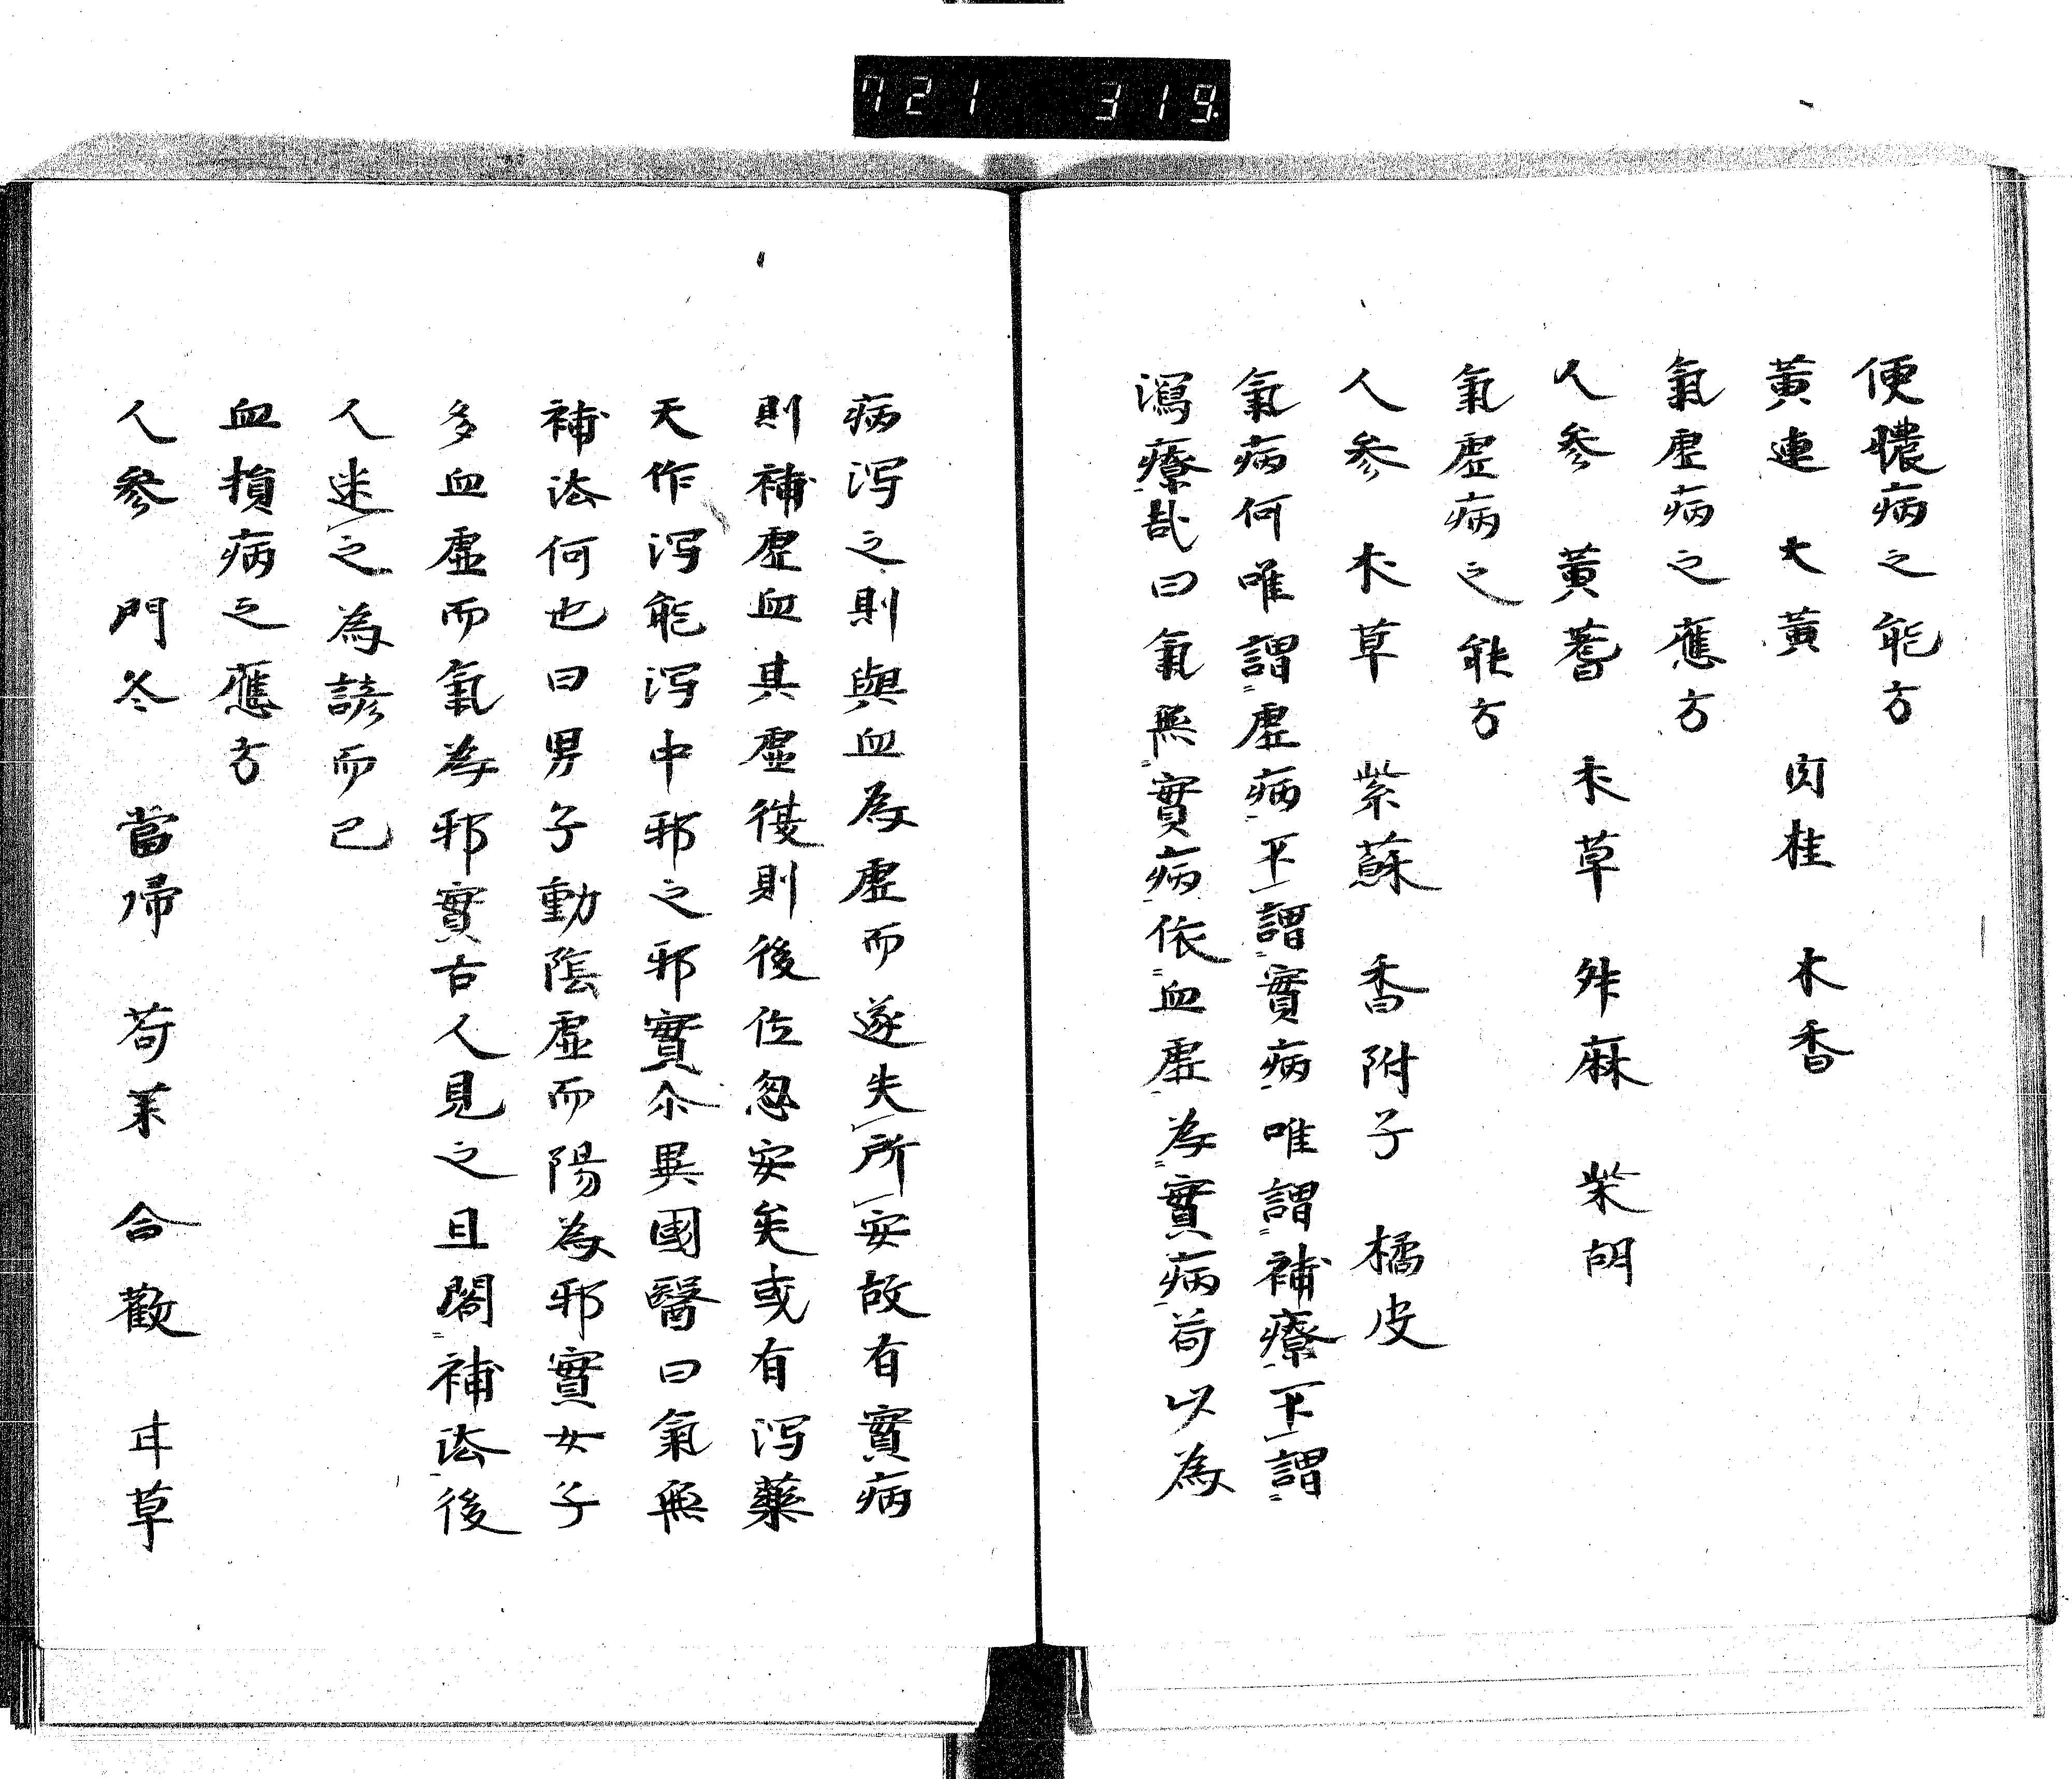 721 319
便膿病之能方
黃連 大黃 肉桂 木香
氣虛病之應方
人参 黃蓍 朮草 舛麻 柴胡
氣虛病之能方
人参 朮草 紫蘇 香附子 橘皮
氣病何唯謂虛病不謂實病唯謂補療不謂
瀉療哉曰氣無實病依血虛為實病苟以為
病泻之則與血為虛而遂失所安故有實病
則補虛血其虛復則後位忽安矣或有泻藥
天作泻能泻中邪之邪實尒異國醫曰氣無
補法何也曰男子動陰虛而陽為邪實女子
多血虛而氣為邪實古人見之且閣補法後
人迷之為諺而已
血損病之應方
人參 門冬 當帰 荷葉 合歡 甘草